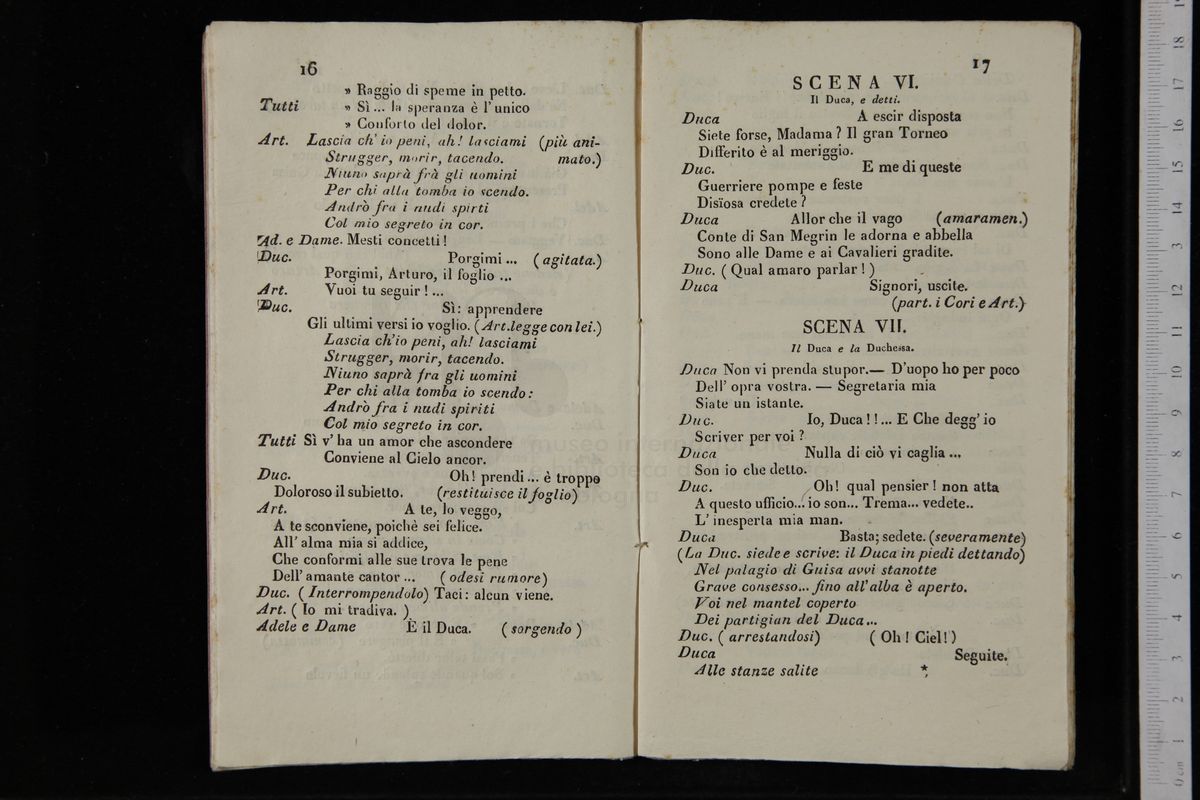 16
» Raggio di speme in petto.
Tutti » Sì ... la speranza è l' unico
» Conforto del dolor.
Art. Lascia ch' io peni, ah! lasciami (più ani-
Strugger, morir, tacendo. mato.)
Niuno saprà frà gli uomini
Per chi alla tomba io scendo.
Andrò fra i nudi spirti
Col mio segreto in cor.
Ad. e Dame. Mesti concetti!
Duc. Porgimi ... (agitata.)
Porgimi, Arturo, il foglio ...
Art. Vuoi tu seguir! ...
Duc. Sì: apprendere
Gli ultimi versi io voglio. (Art.legge con lei.)
Lascia ch'io peni, ah! lasciami
Strugger, morir, tacendo.
Niuno saprà fra gli uomini
Per chi alla tomba io scendo:
Andrò fra i nudi spiriti
Col mio segreto in cor.
Tutti Sì v' ha un amor che ascondere
Conviene al Cielo ancor.
Duc. Oh! prendi ... è troppo
Doloroso il subietto. (restituisce il foglio)
Art. A te, lo veggo,
A te sconviene, poichè sei felice.
All' alma mia si addice,
Che conformi alle sue trova le pene
Dell' amante cantor ... (odesi rumore)
Duc. (Interrompendolo) Taci: alcun viene.
Art. ( Io mi tradiva. )
Adele e Dame È il Duca. (sorgendo)
17
SCENA VI.
Il Duca, e detti.
Duca A escir disposta
Siete forse, Madama? Il gran Torneo
Differito è al meriggio.
Duc. E me di queste
Guerriere pompe e feste
Disïosa credete?
Duca Allor che il vago (amaramen.)
Conte di San Megrin le adorna e abbella
Sono alle Dame e ai Cavalieri gradite.
Duc. ( Qual amaro parlar! )
Duca Signori, uscite.
(part. i Cori e Art.)
SCENA VII.
Il Duca e la Duchessa.
Duca Non vi prenda stupor.— D'uopo ho per poco
Dell' opra vostra. — Segretaria mia
Siate un istante.
Duc. Io, Duca!!... E Che degg' io
Scriver per voi?
Duca Nulla di ciò vi caglia ...
Son io che detto.
Duc. Oh! qual pensier! non atta
A questo ufficio... io son... Trema... vedete..
L' inesperta mia man.
Duca Basta; sedete. (severamente)
(La Duc. siede e scrive: il Duca in piedi dettando)
Nel palagio di Guisa avvi stanotte
Grave consesso... fino all' alba è aperto.
Voi nel mantel coperto
Dei partigian del Duca...
Duc. (arrestandosi) ( Oh! Ciel! )
Duca Seguite.
Alle stanze salite *